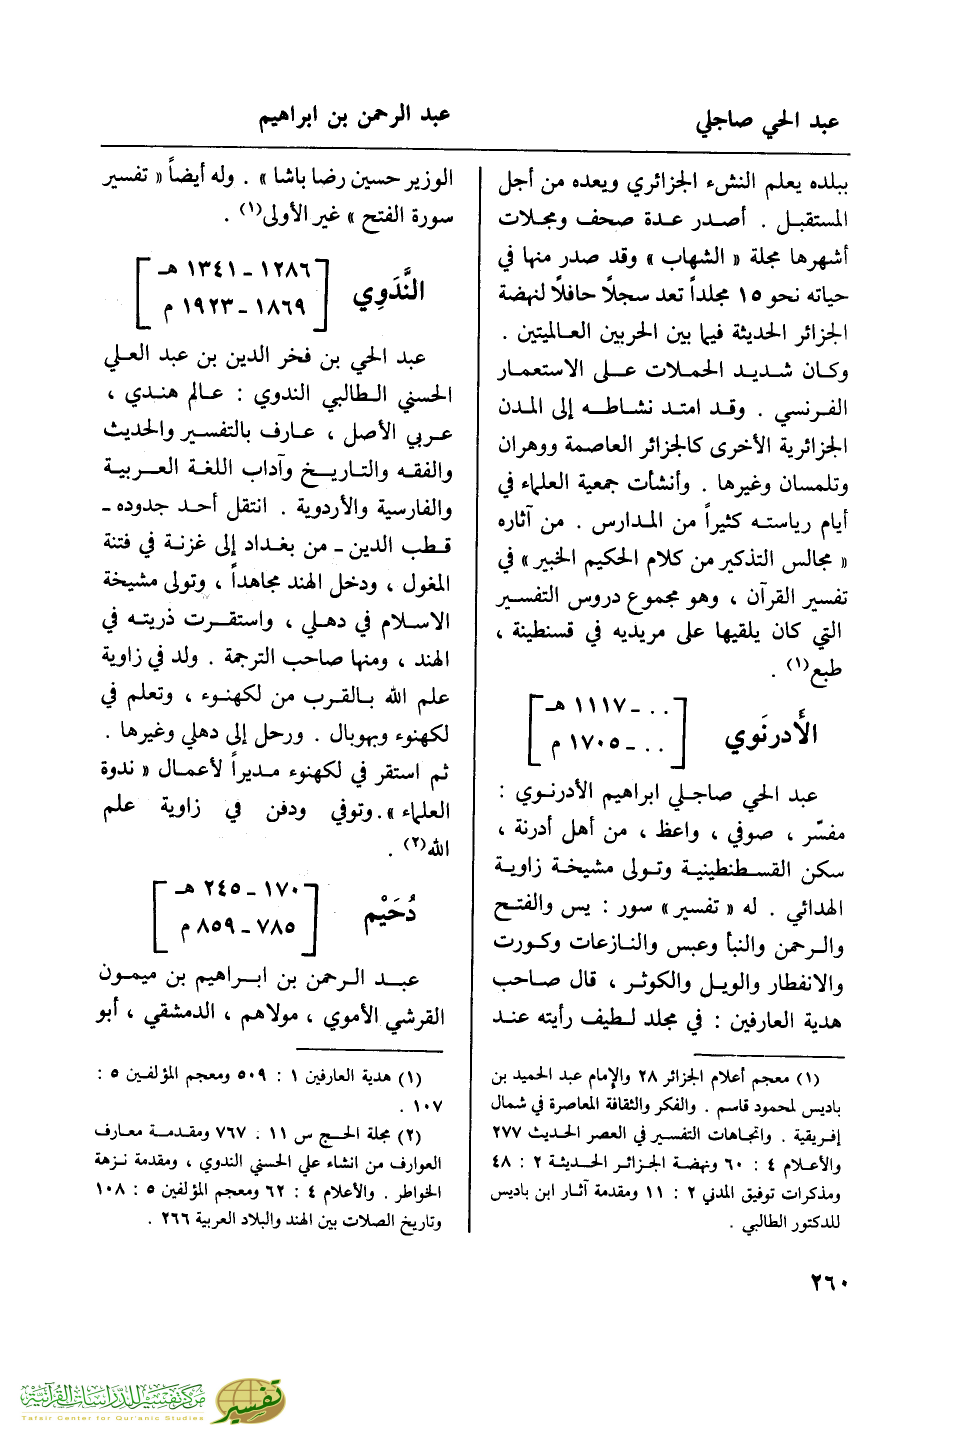 عبد الحي صاجلي
عبد الرحمن بن ابراهيم
ببلده يعلم النشء الجزائري ويعده من أجل
المستقبل . أصدر عدة صحف ومجلات
أشهرها مجلة « الشهاب » وقد صدر منها في
حياته نحو ١٥ مجلداً تعد سجلاً حافلاً لنهضة
الجزائر الحديثة فيما بين الحربين العالميتين .
وكان شديد الحملات على الاستعمار
الفرنسي . وقد امتد نشاطه إلى المدن
الجزائرية الأخرى كالجزائر العاصمة ووهران
وتلمسان وغيرها . وأنشأت جمعية العلماء في
أيام رياسته كثيراً من المدارس . من آثاره
« مجالس التذكير من كلام الحكيم الخبير » في
تفسير القرآن ، وهو مجموع دروس التفسير
التي كان يلقيها على مريديه في قسنطينة ،
طبع(١) .
الأَدرنَوي
[ . . ـ ١١١٧ هـ
. . ـ ١٧٠٥ م ]
عبد الحي صاجلي ابراهيم الأدرنوي :
مفسّر ، صوفي ، واعظ ، من أهل أدرنة ،
سكن القسطنطينية وتولى مشيخة زاوية
الهدائي . له « تفسير » سور : يس والفتح
والرحمن والنبأ وعبس والنازعات وكورت
والانفطار والويل والكوثر ، قال صاحب
هدية العارفين : في مجلد لطيف رأيته عند
(١) معجم أعلام الجزائر ٢٨ والإمام عبد الحميد بن
باديس لمحمود قاسم . والفكر والثقافة المعاصرة في شمال
إفريقية . واتجاهات التفسير في العصر الحديث ٢٧٧
والأعلام ٤ : ٦٠ ونهضة الجزائر الحديثة ٢ : ٤٨
ومذكرات توفيق المدني ٢ : ١١ ومقدمة آثار ابن باديس
للدكتور الطالبي .
الوزير حسين رضا باشا » . وله أيضاً « تفسير
سورة الفتح » غير الأولى(١) .
النَّدَوِي
[ ١٢٨٦ ـ ١٣٤١ هـ
١٨٦٩ ـ ١٩٢٣ م ]
عبد الحي بن فخر الدين بن عبد العلي
الحسني الطالبي الندوي : عالم هندي ،
عربي الأصل ، عارف بالتفسير والحديث
والفقه والتاريخ وآداب اللغة العربية
والفارسية والأردوية . انتقل أحد جدوده ـ
قطب الدين ـ من بغداد إلى غزنة في فتنة
المغول ، ودخل الهند مجاهداً ، وتولى مشيخة
الاسلام في دهلي ، واستقرت ذريته في
الهند ، ومنها صاحب الترجمة . ولد في زاوية
علم الله بالقرب من لكهنوء ، وتعلم في
لكهنوء وبهوبال . ورحل إلى دهلي وغيرها .
ثم استقر في لكهنوء مديراً لأعمال « ندوة
العلماء ».وتوفي ودفن في زاوية علم
الله(٢) .
دُحَيْم
[ ١٧٠ ـ ٢٤٥ هـ
٧٨٥ ـ ٨٥٩ م ]
عبد الرحمن بن ابراهيم بن ميمون
القرشي الأموي ، مولاهم ، الدمشقي ، أبو
(١) هدية العارفين ١ : ٥٠٩ ومعجم المؤلفين ٥ :
١٠٧ .
(٢) مجلة الحج س ١١ : ٧٦٧ ومقدمة معارف
العوارف من انشاء علي الحسني الندوي ، ومقدمة نزهة
الخواطر . والأعلام ٤ : ٦٢ ومعجم المؤلفين ٥ : ١٠٨
وتاريخ الصلات بين الهند والبلاد العربية ٢٦٦ .
٢٦٠
مركز تفسير للدراسات القرآنية
Tafsir Center for Qur'anic Studies
تفسير